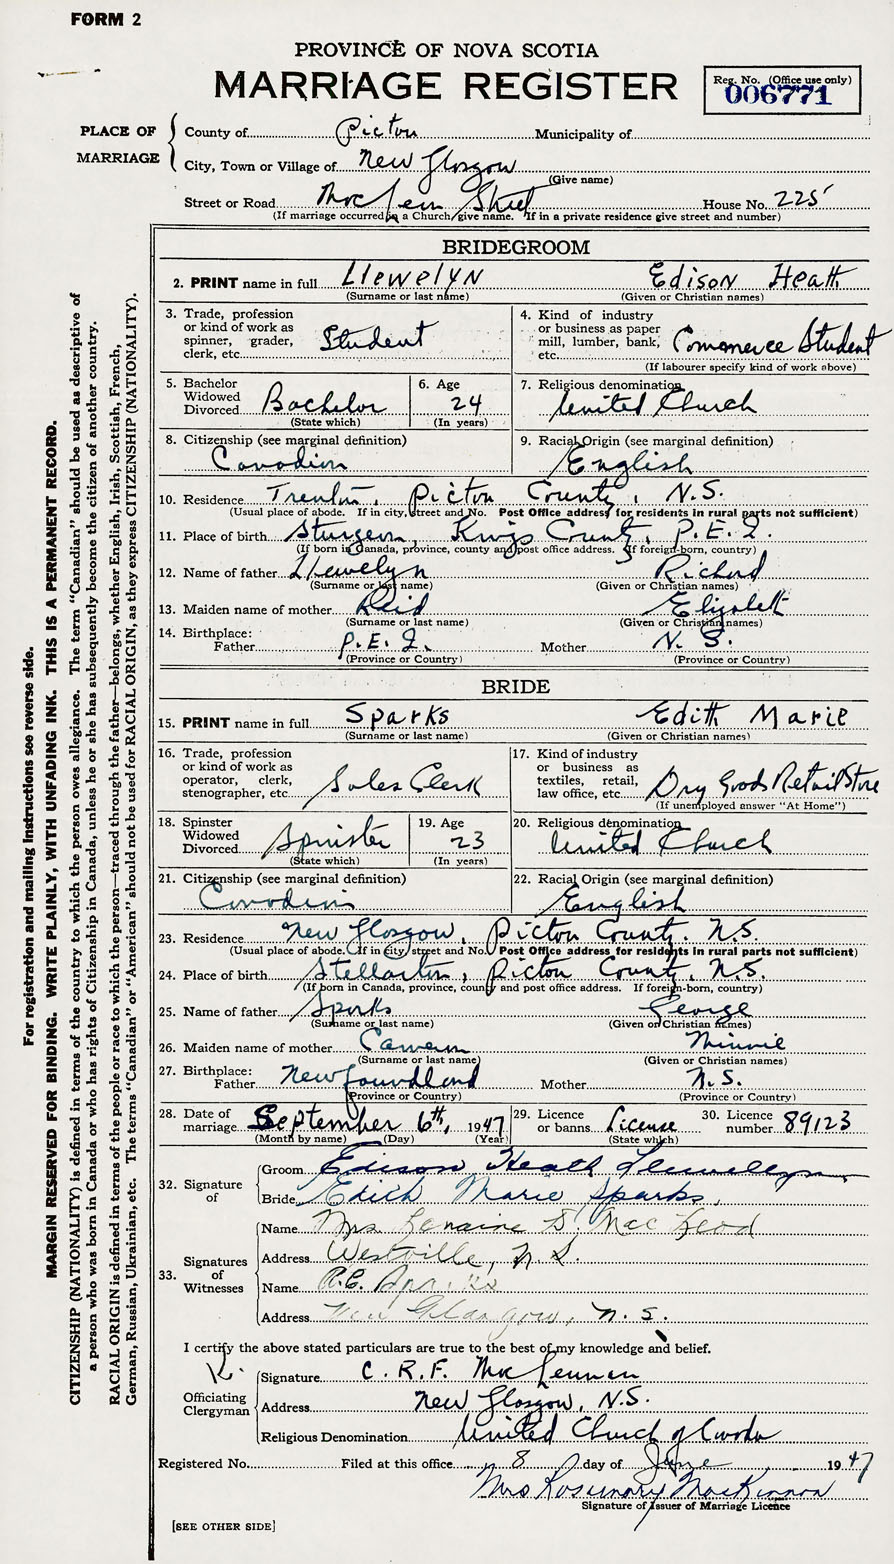 FORM 2
PROVINCE OF NOVA SCOTIA
MARRIAGE REGISTER
Reg. No. (Office use only)
006771
PLACE OF MARRIAGE
County of Pictou Municipality of
City, Town or Village of New Glasgow
(Give name)
Street or Road MacLean Street House No. 225
(If marriage occurred in a Church give name. If in a private residence give street and number)
BRIDEGROOM
2. PRINT name in full Llewelyn Edison Heath
(Surname or last name) (Given or Christian names)
3. Trade, profession or kind of work as spinner, grader, clerk, etc. Student
4. Kind of industry or business as paper mill, lumber, bank, etc. Commerce Student
(If labourer specify kind of work above)
5. Bachelor Widowed Divorced Bachelor
(State which)
6. Age 24
(In years)
7. Religious denomination United Church
8. Citizenship (see marginal definition) Canadian
9. Racial Origin (see marginal definition) English
10. Residence Trenton, Pictou County, N.S.
(Usual place of abode. If in city, street and No. Post Office address for residents in rural parts not sufficient)
11. Place of birth Sturgeon, Kings County, P.E.I.
(If born in Canada, province, county and post office address. If foreign-born, country)
12. Name of father Llewelyn Richard
(Surname or last name) (Given or Christian names)
13. Maiden name of mother Reid Elizabeth
(Surname or last name) (Given or Christian names)
14. Birthplace: Father P.E.I. Mother N.S.
(Province or Country) (Province or Country)
BRIDE
15. PRINT name in full Sparks Edith Marie
(Surname or last name) (Given or Christian names)
16. Trade, profession or kind of work as operator, clerk, stenographer, etc. Sales Clerk
17. Kind of industry or business as textiles, retail, law office, etc. Dry Goods Retail Store
(If unemployed answer "At Home")
18. Spinster Widowed Divorced Spinster
(State which)
19. Age 23
(In years)
20. Religious denomination United Church
21. Citizenship (see marginal definition) Canadian
22. Racial Origin (see marginal definition) English
23. Residence New Glasgow, Pictou County, N.S.
(Usual place of abode. If in city street and No. Post Office address for residents in rural parts not sufficient)
24. Place of birth Stellarton, Pictou County, N.S.
(If born in Canada, province, county and post office address. If foreign-born, country)
25. Name of father Sparks George
(Surname or last name) (Given or Christian names)
26. Maiden name of mother Cameron Minnie
(Surname or last name) (Given or Christian names)
27. Birthplace: Father Newfoundland Mother N.S.
(Province or Country) (Province or Country)
28. Date of marriage September 6th, 1947
(Month by name) (Day) (Year)
29. Licence or banns License
(State which)
30. Licence number 89123
32. Signature of
Groom Edison Heath Llewellyn
Bride Edith Marie Sparks
33. Signatures of Witnesses
Name Mrs. Lenaine D. MacLeod
Address Westville, N.S.
Name R.C. Sparks
Address New Glasgow, N.S.
I certify the above stated particulars are true to the best of my knowledge and belief.
Officiating Clergyman
Signature C.R.F. MacLennan
Address New Glasgow, N.S.
Religious Denomination United Church of Canada
Registered No. Filed at this office 8 day of June 1947
Mrs Rosemary MacKinnon
Signature of Issuer of Marriage Licence
[SEE OTHER SIDE]
For registration and mailing instructions see reverse side.
MARGIN RESERVED FOR BINDING. WRITE PLAINLY, WITH UNFADING INK. THIS IS A PERMANENT RECORD.
CITIZENSHIP (NATIONALITY) is defined in terms of the country to which the person owes allegiance. The term "Canadian" should be used as descriptive of
a person who was born in Canada or who has rights of Citizenship in Canada, unless he or she has subsequently become the citizen of another country.
RACIAL ORIGIN is defined in terms of the people or race to which the person—traced through the father—belongs, whether English, Irish, Scottish, French,
German, Russian, Ukrainian, etc. The terms "Canadian" or "American" should not be used for RACIAL ORIGIN, as they express CITIZENSHIP (NATIONALITY).